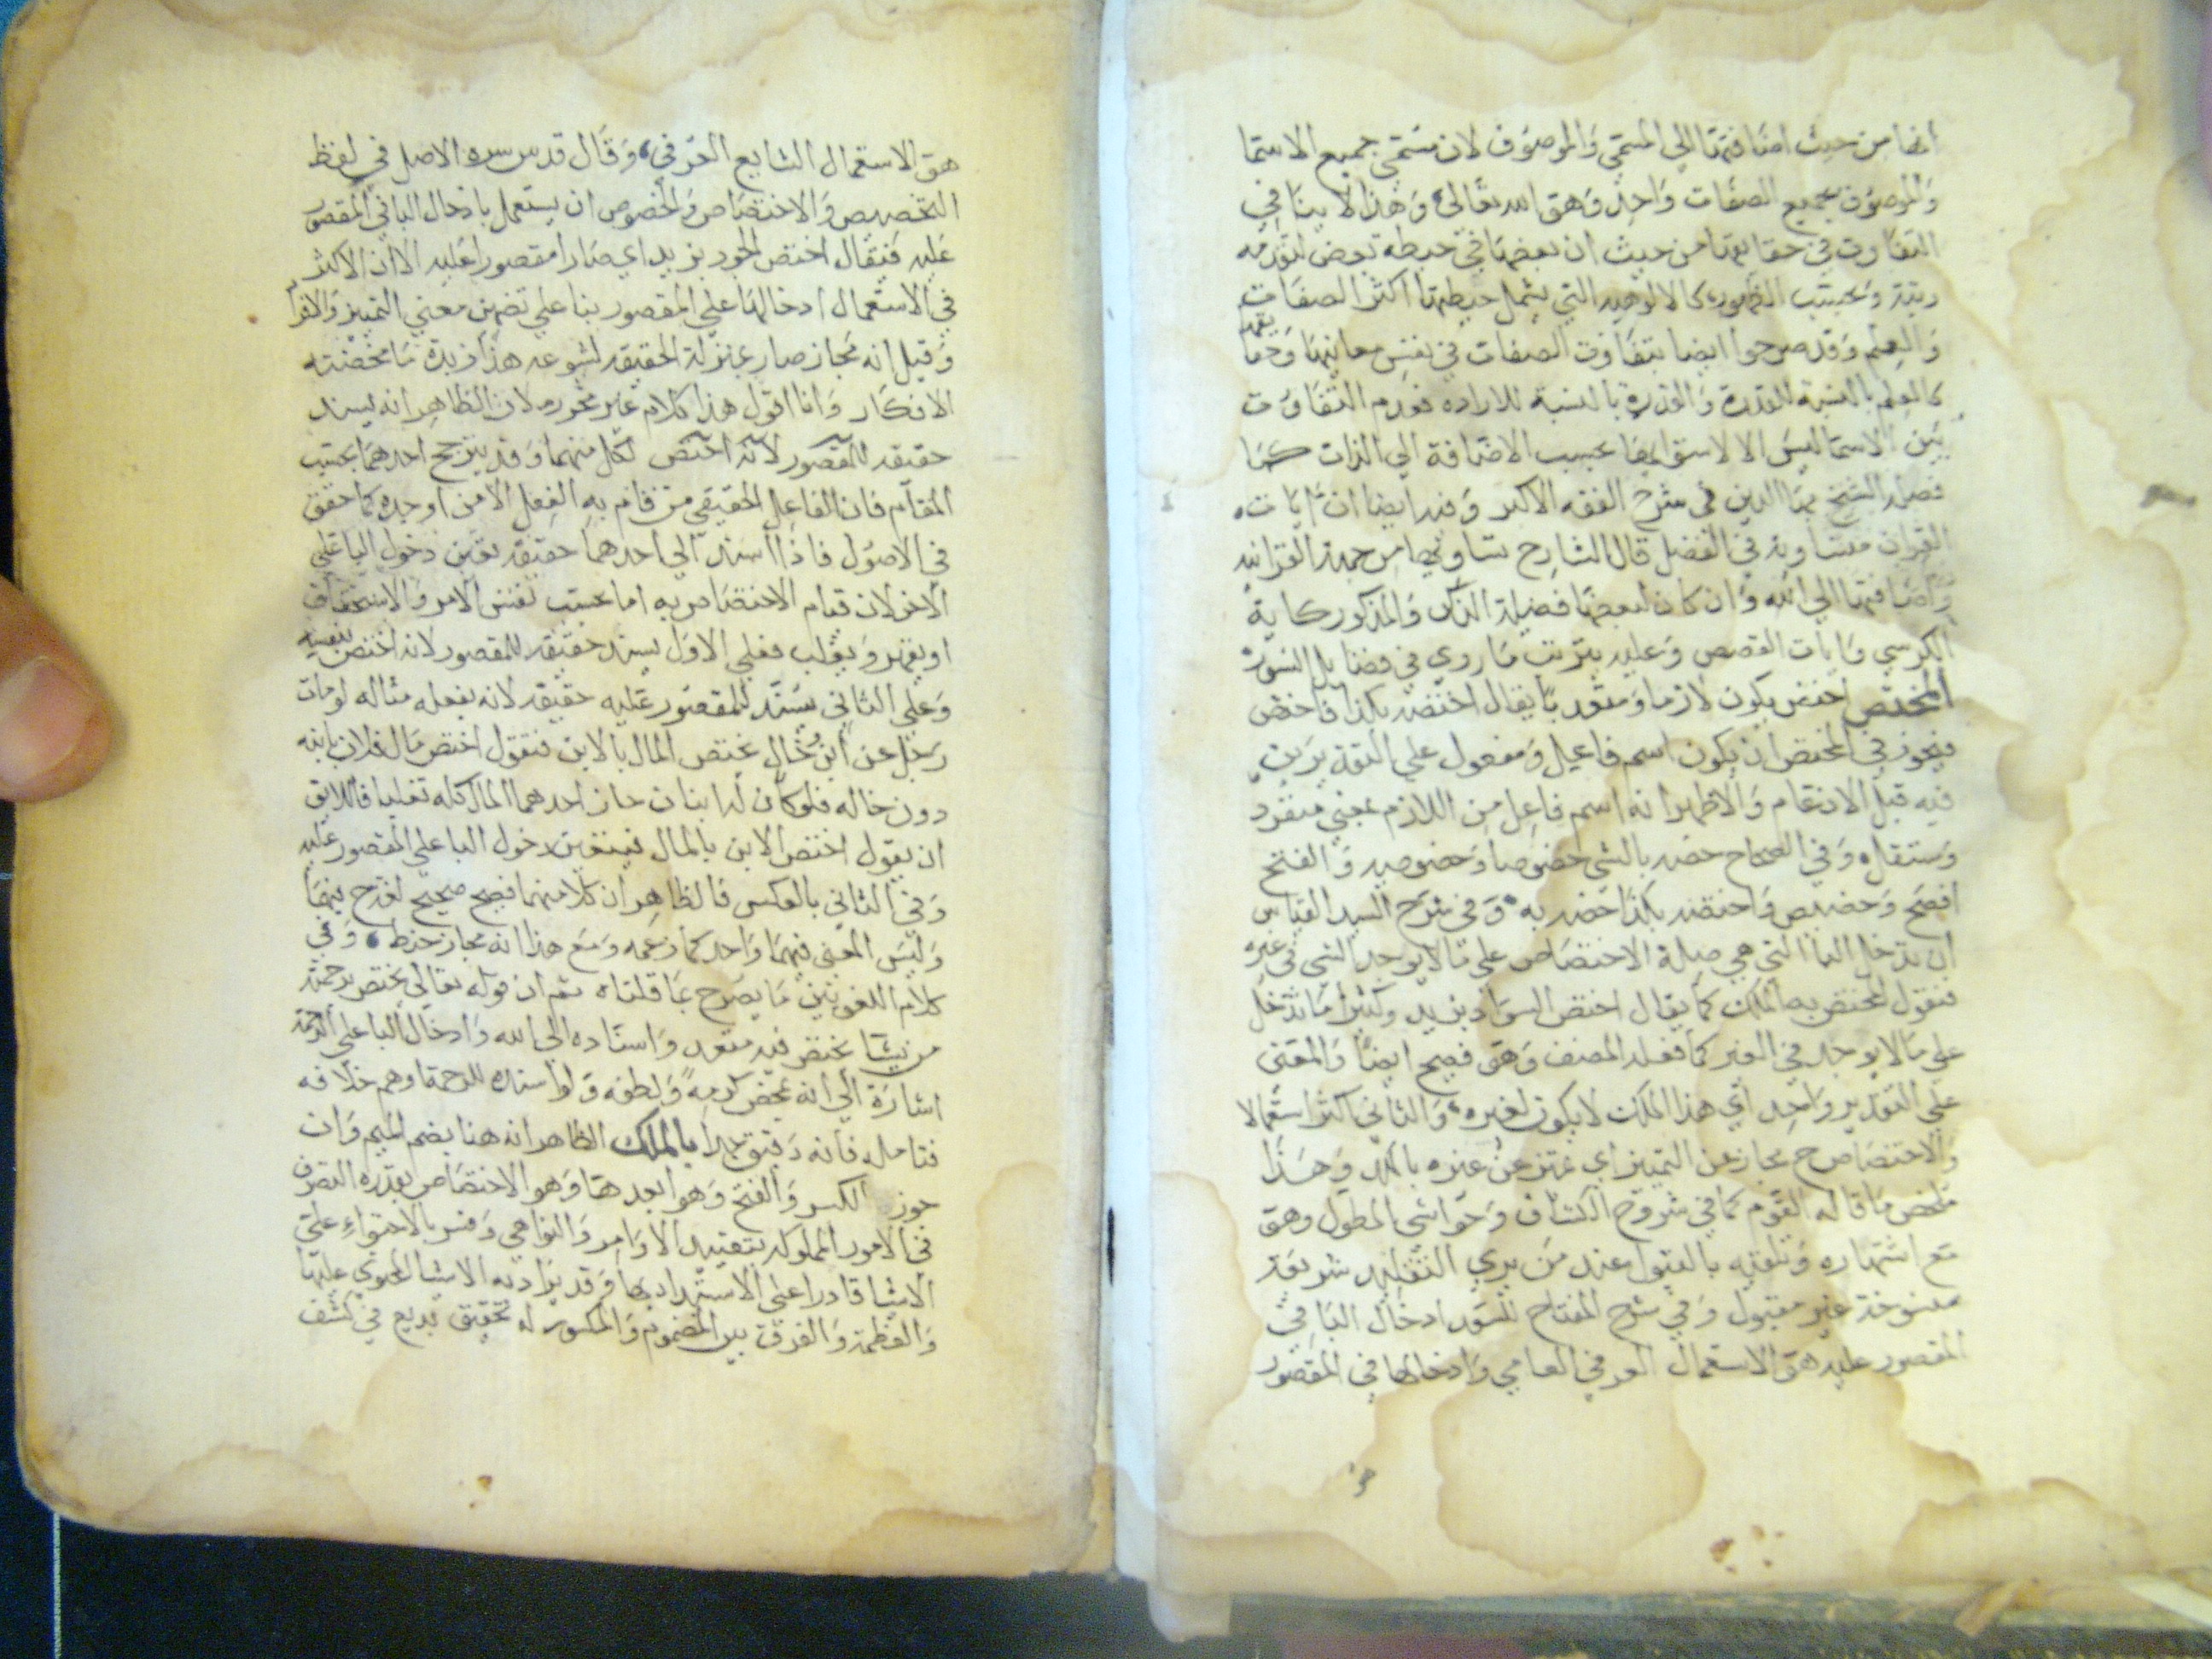 ايضا من حيث اضافتها الي المسمي والموصوف لان مسمي جميع الاسما
والموصوف بجميع الصفات واحد وهو الله تعالى وهذا لا ينافي
التفاوت في حقايقها من حيث ان بعضها في حيطه بعض لتقدمه
رتبة وبحسب الظهور كالالوهيه التي يشمل حيطتها اكثر الصفات
والعلم وقد صرحوا ايضا بتفاوت الصفات في نفس معانيها وحقا يقها
كالعلم بالنسبة للقدرة والقدرة بالنسبة للاراده فعدم التفاوت
بين الاسما ليس الا لاستوايها بحسب الاضافة الي الذات كما
فصله الشيخ بها الدين في شرح الفقه الاكبر وفيه ايضا ان ايات
القران متساوية في الفضل قال الشارح تساويها من جهة القرانيه
واضافتها الي الله وان كان لبعضها فضيلة الذكر والمذكور كاية
الكرسي وايات القصص وعليه يترتب ما روي في فضايل السور
المختص اختص يكون لازما ومتعديا يقال اختصه بكذا فاختص
فيجوز في المختص ان يكون اسم فاعيل ومفعول علي التقديرين
فيه قبل الادغام والاظهر انه اسم فاعل من اللازم بمعني منفرد
ومستقل وفي الصحاح خصه بالشي خصوصا وخصوصيه والفتح
افصح وخصيص واختصه بكذا خصه به وفي شرح السيد القياس
ان تدخل البا التي هي صلة الاختصاص علي ما لا يوجد الشي في غيره
فتقول المختص به الملك كما يقال اختص السواد بزيد وكثيرا ما تدخل
علي ما لا يوجد في الغير كما فعله المصنف وهو فصيح ايضا والمعني
علي التقدير واحد اي هذا الملك لا يكون لغيره والثاني اكثر استعمالا
والاختصاص ح مجاز عن التمييز اي تميز عن غيره بالملك وهذا
ملخص ما قاله القوم كما في شروح الكشاف وحواشي المطول وهو
مع اشتهاره وتلقيه بالقبول عند من يري التقليد شريعة
منسوخة غير مقبول وفي شرح المفتاح للسعد ادخال البا في
المقصور عليه هو الاستعمال العرفي العامي وادخالها في المقصور
هو
هو الاستعمال الشايع العرفي وقال قدس سره الاصل في لفظ
التخصيص والاختصاص والخصوص ان يستعمل بادخال البا في المقصور
عليه فيقال اختص الجود بزيد اي صار مقصورا عليه الا ان الاكثر
في الاستعمال ادخالها علي المقصور بنا علي تضمين معني التمييز والافرا
وقيل انه مجاز صار بمنزلة الحقيقه لشيوعه هذا زبدة ما مخضته
الافكار وانا اقول هذا كلام غير محرر لان الظاهر انه يسند
حقيقه للمقصور لانه اختص لكل منهما وقد يترجح احدهما بحسب
المقام فان الفاعل الحقيقي من قام به الفعل الا من اوجده كما حقق
في الاصول فاذا اسند الي احدهما حقيقه تعين دخول البا علي
الاخر لان قيام الاختصاص به اما بحسب نفس الامر والاستحقاق
او بقهر وتغلب فعلي الاول يسند حقيقه للمقصور لانه اختص بنفسه
وعلي الثاني يسند للمقصور عليه حقيقه لانه بفعله مثاله لو مات
رجل عن ابن وخال يختص المال بالابن فتقول اختص مال فلان بابنه
دون خاله فلو كان له ابنان حاز احدهما المال كله تغلبا فاللايق
ان يقول اختص الابن بالمال فيتعين دخول البا علي المقصور عليه
وفي الثاني بالعكس فالظاهر ان كلا منهما فصيح صحيح لفرق بينهما
وليس المعني فيهما واحد كما زعمه ومع هذا انه مجاز خبط وفي
كلام اللغويين ما يصرح بما قلناه ثم ان قوله تعالى يختص برحمته
من يشا يختص فيه متعد واسناده الي الله وادخال البا علي الرحمة
اشارة الي انه بمحض كرمه ولطفه ولو اسنده للرحمة اوهم خلافه
فتامله فانه دقيق جدا بالملك الظاهر انه هنا بضم الميم وان
جوز الكسر والفتح وهو ابعدها وهو الاختصاص بقدره التصرف
في الامور المملوكه بتنفيذ الاوامر والنواهي وفسر بالاحتواء علي
الاشيا قادرا علي الاستبداد بها وقد يراد به الاشيا المحتوي عليها
والعظمة والفرق بين المضموم والمكسور له تحقيق بديع في كشف